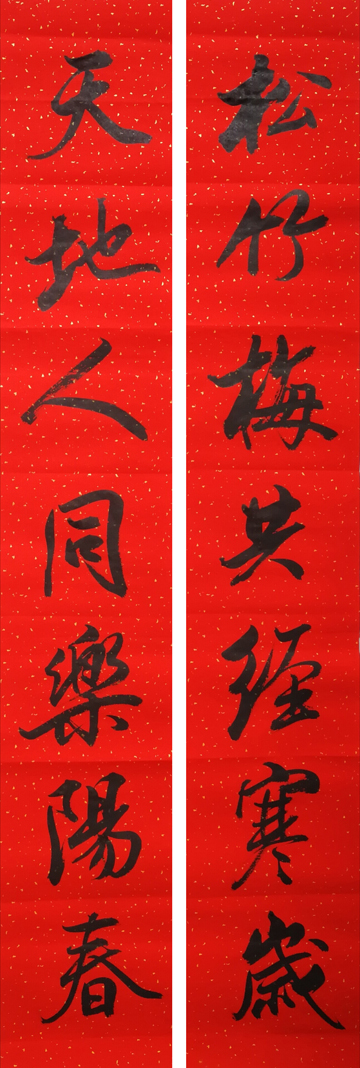 松竹梅共經寒歲
天地人同樂陽春